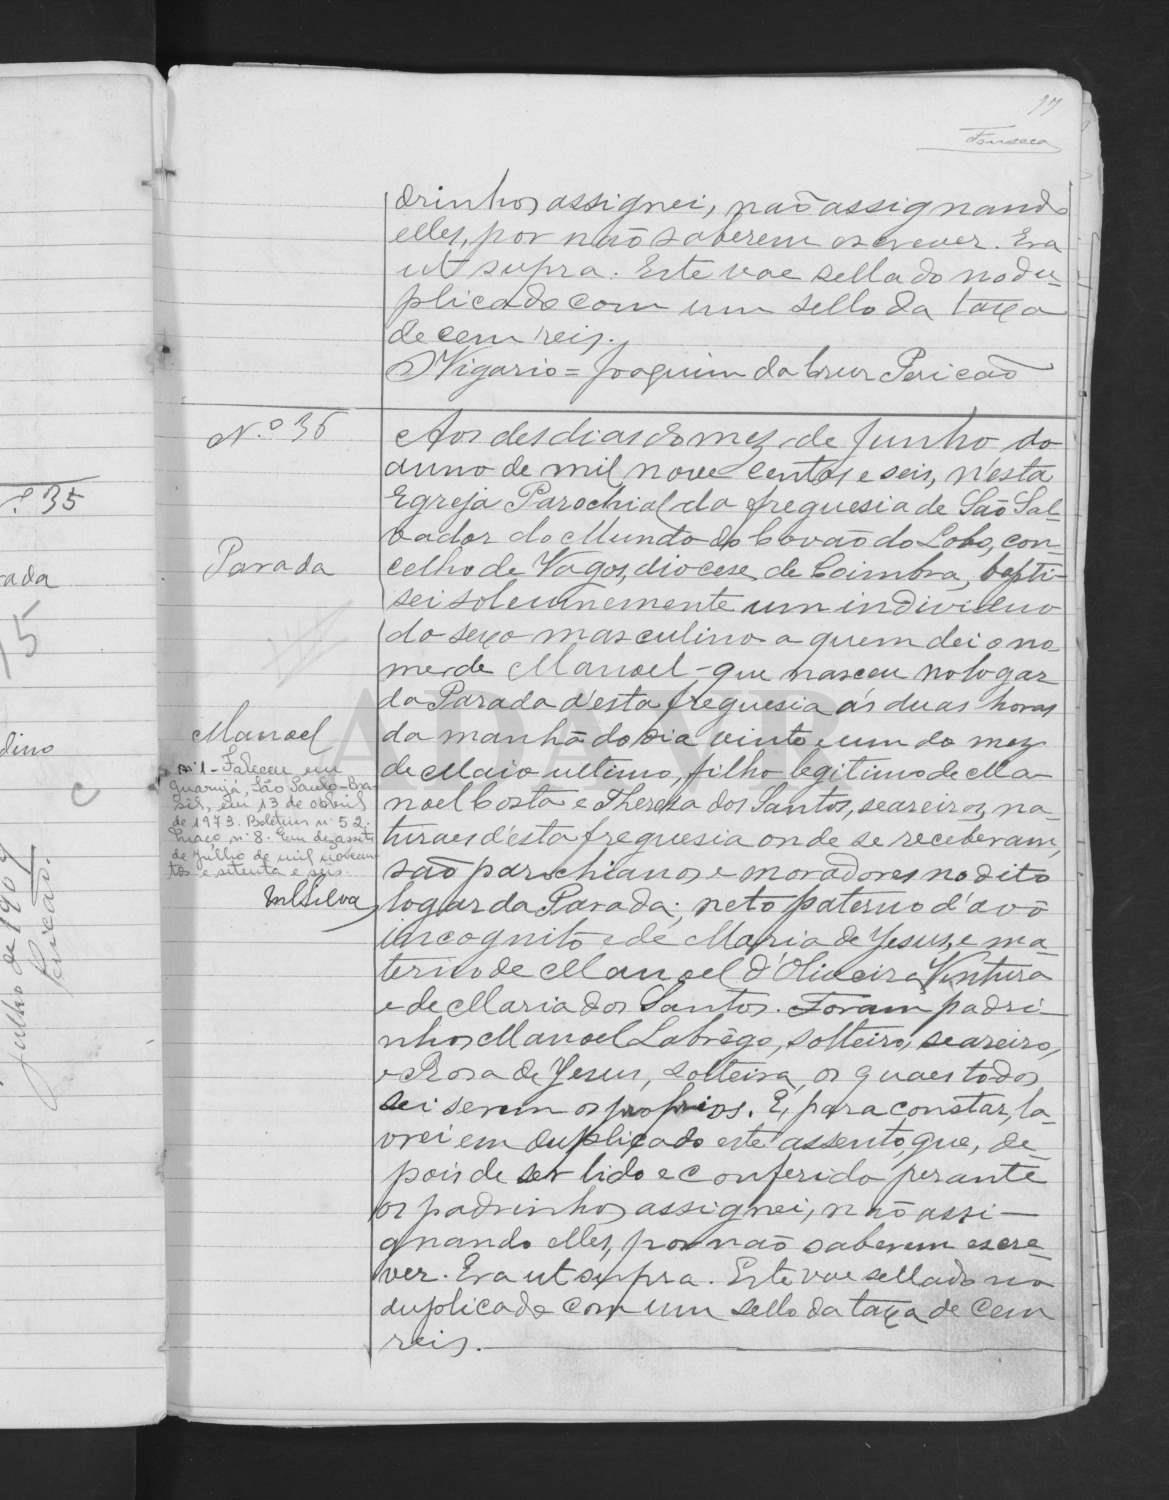 17
Fonseca
drinhos assignei, não assignando
elles, por não saberem escrever. Era
ut supra. Este vae sellado no du-
plicado com um sello da taxa
de cem reis.
O Vigario = Joaquim da Cruz Pericão
N.º 36
Parada
Manoel
nº 1 - Faleceu em
Guarujá, São Paulo-Bra-
sil, em 13 de abril
de 1973. Boletim nº 52.
Maço nº 8. Em dezassete
de Julho de mil novecen-
tos e setenta e seis.
MSilva
Aos des dias do mez de Junho do
anno de mil nove centos e seis, n'esta
Egreja Parochial da freguesia de São Sal-
vador do Mundo do Covão do Lobo, con-
celho de Vagos, diocese de Coimbra, bapti-
sei solemnemente um individuo
do sexo masculino a quem dei o no
me de Manoel - que nasceu no logar
da Parada d'esta freguesia ás duas horas
da manhã do dia vinte e um do mez
de Maio ultimo, filho legitimo de Ma-
noel Costa e Theresa dos Santos, seareiros, na-
turaes d'esta freguesia onde se receberam,
são parochianos e moradores no dito
logar da Parada; neto paterno d'avô
incognito e de Maria de Jesus, e ma
terno de Manoel d'Oliveira Ventura
e de Maria dos Santos. Foram padri-
nhos Manoel Labrêgo, solteiro, seareiro,
e Rosa de Jesus, solteira, os quaes todos
sei serem os proprios. E, para constar, la-
vrei em duplicado este assento, que, de-
pois de ser lido e conferido perante
os padrinhos assignei, não assi-
gnando elles, por não saberem escre-
ver. Era ut supra. Este vae sellado no
duplicado com um sello da taxa de cem
reis.
.º 35
rada
15
dino
C
Julho de 1909
Pericão.
ADAVR